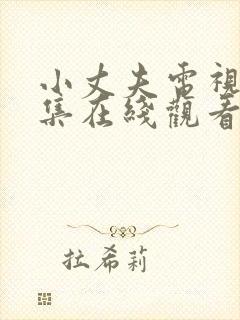 小丈夫電視
集在綫觀看
拉希莉